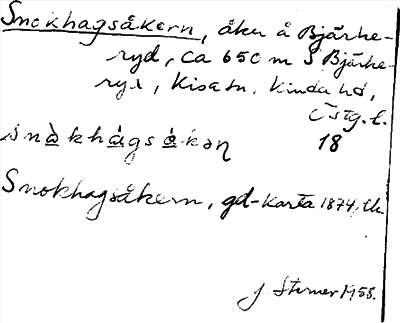 Snokhagsåkern, åker å Bjärke-
ryd, ca 650 m S Bjärke-
ryd, Kisa sn. Kinda hd,
Östg. l.
snòkhàgsåkəɳ 18
Snokhagsåkern, gd-karta 1874,
J. Sterner 1958.